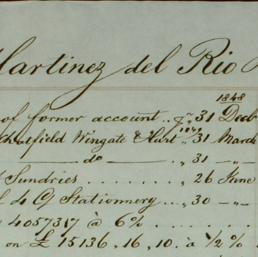 Martinez del Rio
1848
of former account .. " 31 Decb
Chatfield Wingate & Hart 1849 " 31 March
— do — " 31 — " —
Sundries ........ " 26 June
4 Q Stationery .. " 30 — " —
405737 @ 6% ........
on £ 15136 . 16 . 10 . à ½ %